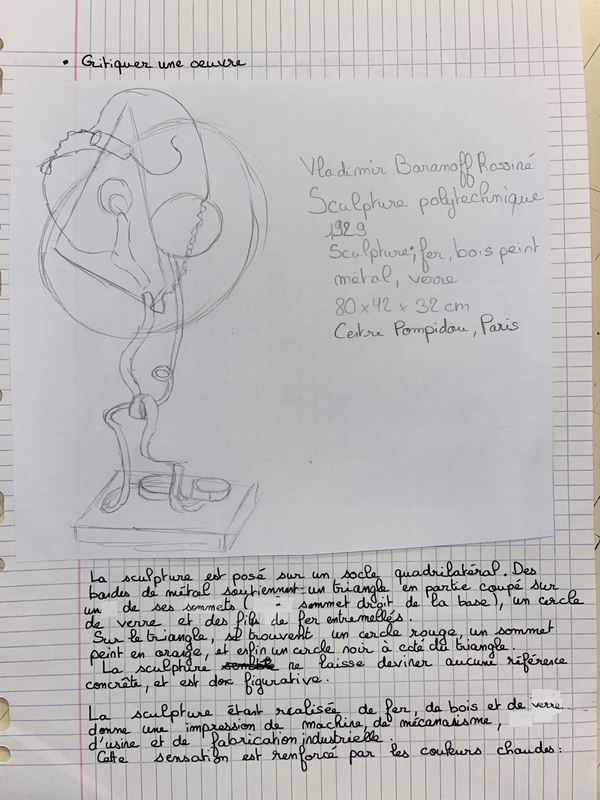 • Critiquer une oeuvre
Vladimir Baranoff Rossiné
Sculpture polytechnique
1929
Sculpture; fer, bois peint
métal, verre
80 x 42 x 32 cm
Centre Pompidou, Paris
La sculpture est posé sur un socle quadrilatéral. Des
bandes de métal soutiennent: un triangle en partie coupé sur
un de ses sommets ( - sommet droit de la base), un cercle
de verre et des fils de fer entremellés.
Sur le triangle, se trouvent un cercle rouge, un sommet
peint en orange, et enfin un cercle noir à coté du triangle.
La sculpture ne laisse deviner aucune référence
concrète, et est donc figurative.
La sculpture étant realisée de fer, de bois et de verre
donne une impression de machine, de mécananisme,
d'usine et de fabrication industrielle.
Cette sensation est renforcé par les couleurs chaudes: